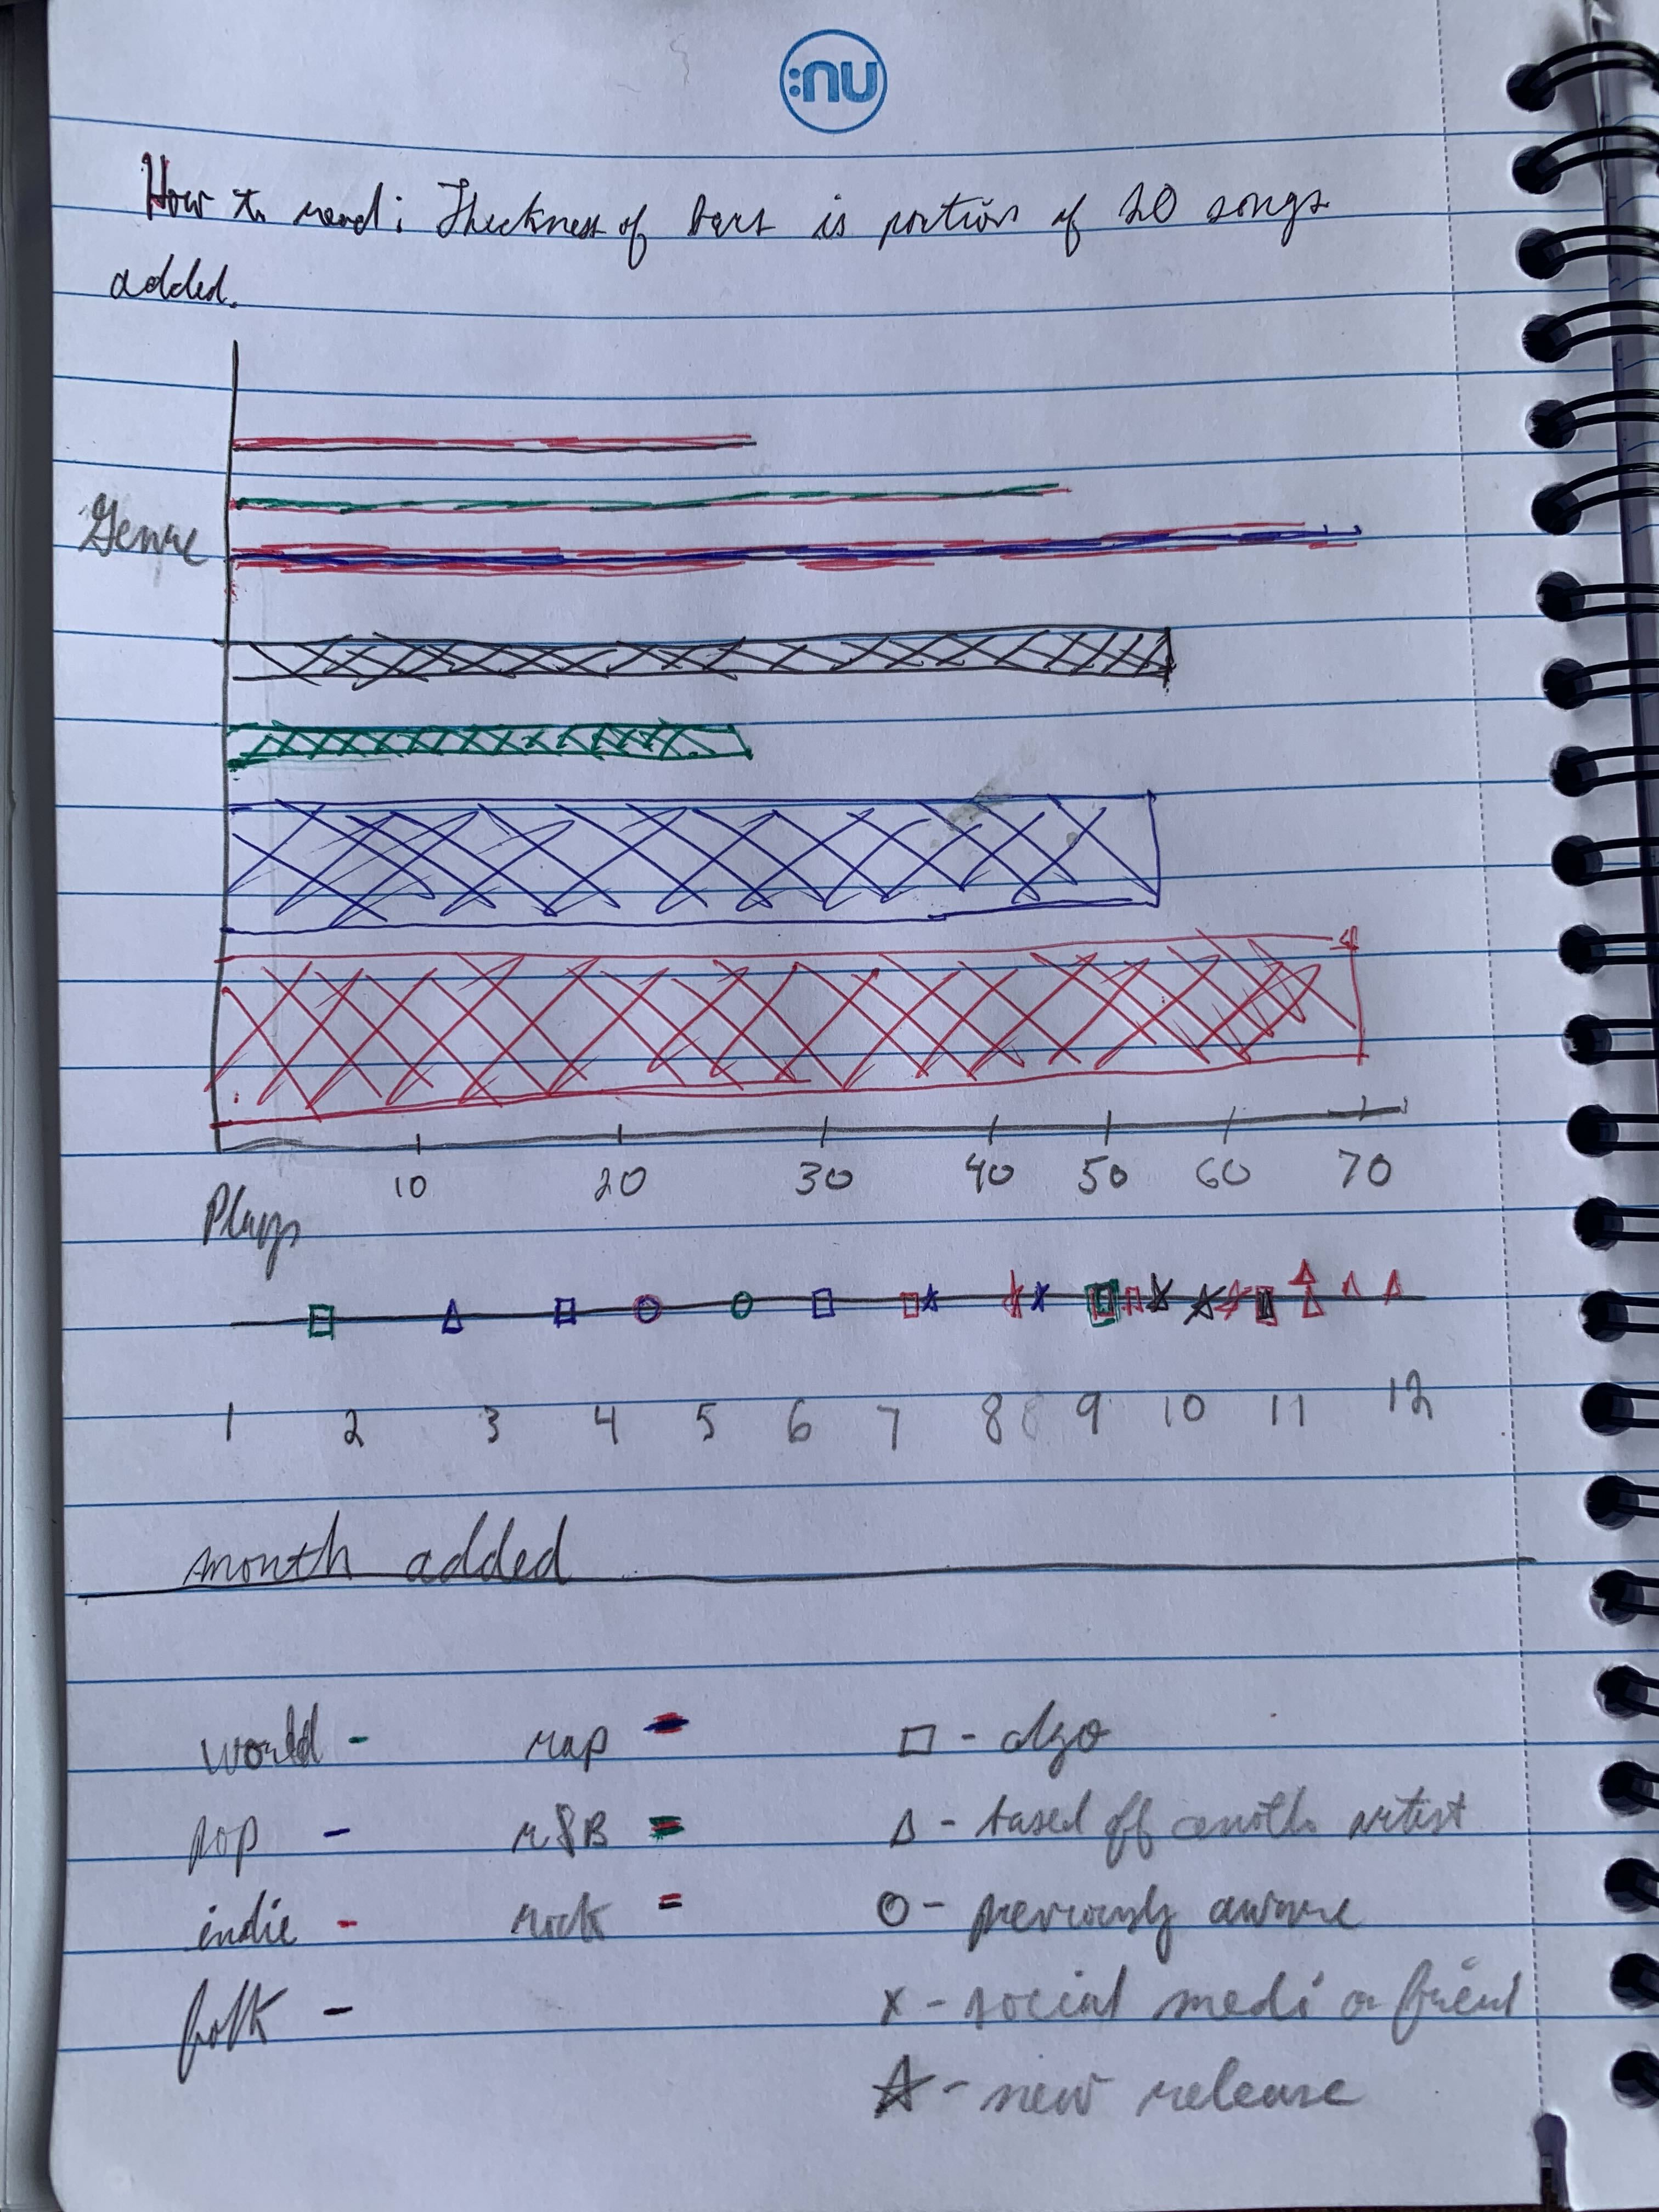 :nu
How to read: Thickness of bars is portion of 20 songs
added.
Genre
10 20 30 40 50 60 70
Plays
1 2 3 4 5 6 7 8 8 9 10 11 12
month added
world - rap □ - algo
pop - r&B △ - based off anoth artist
indie - rock O - previously aware
folk - x - social medi or friend
☆ - new release